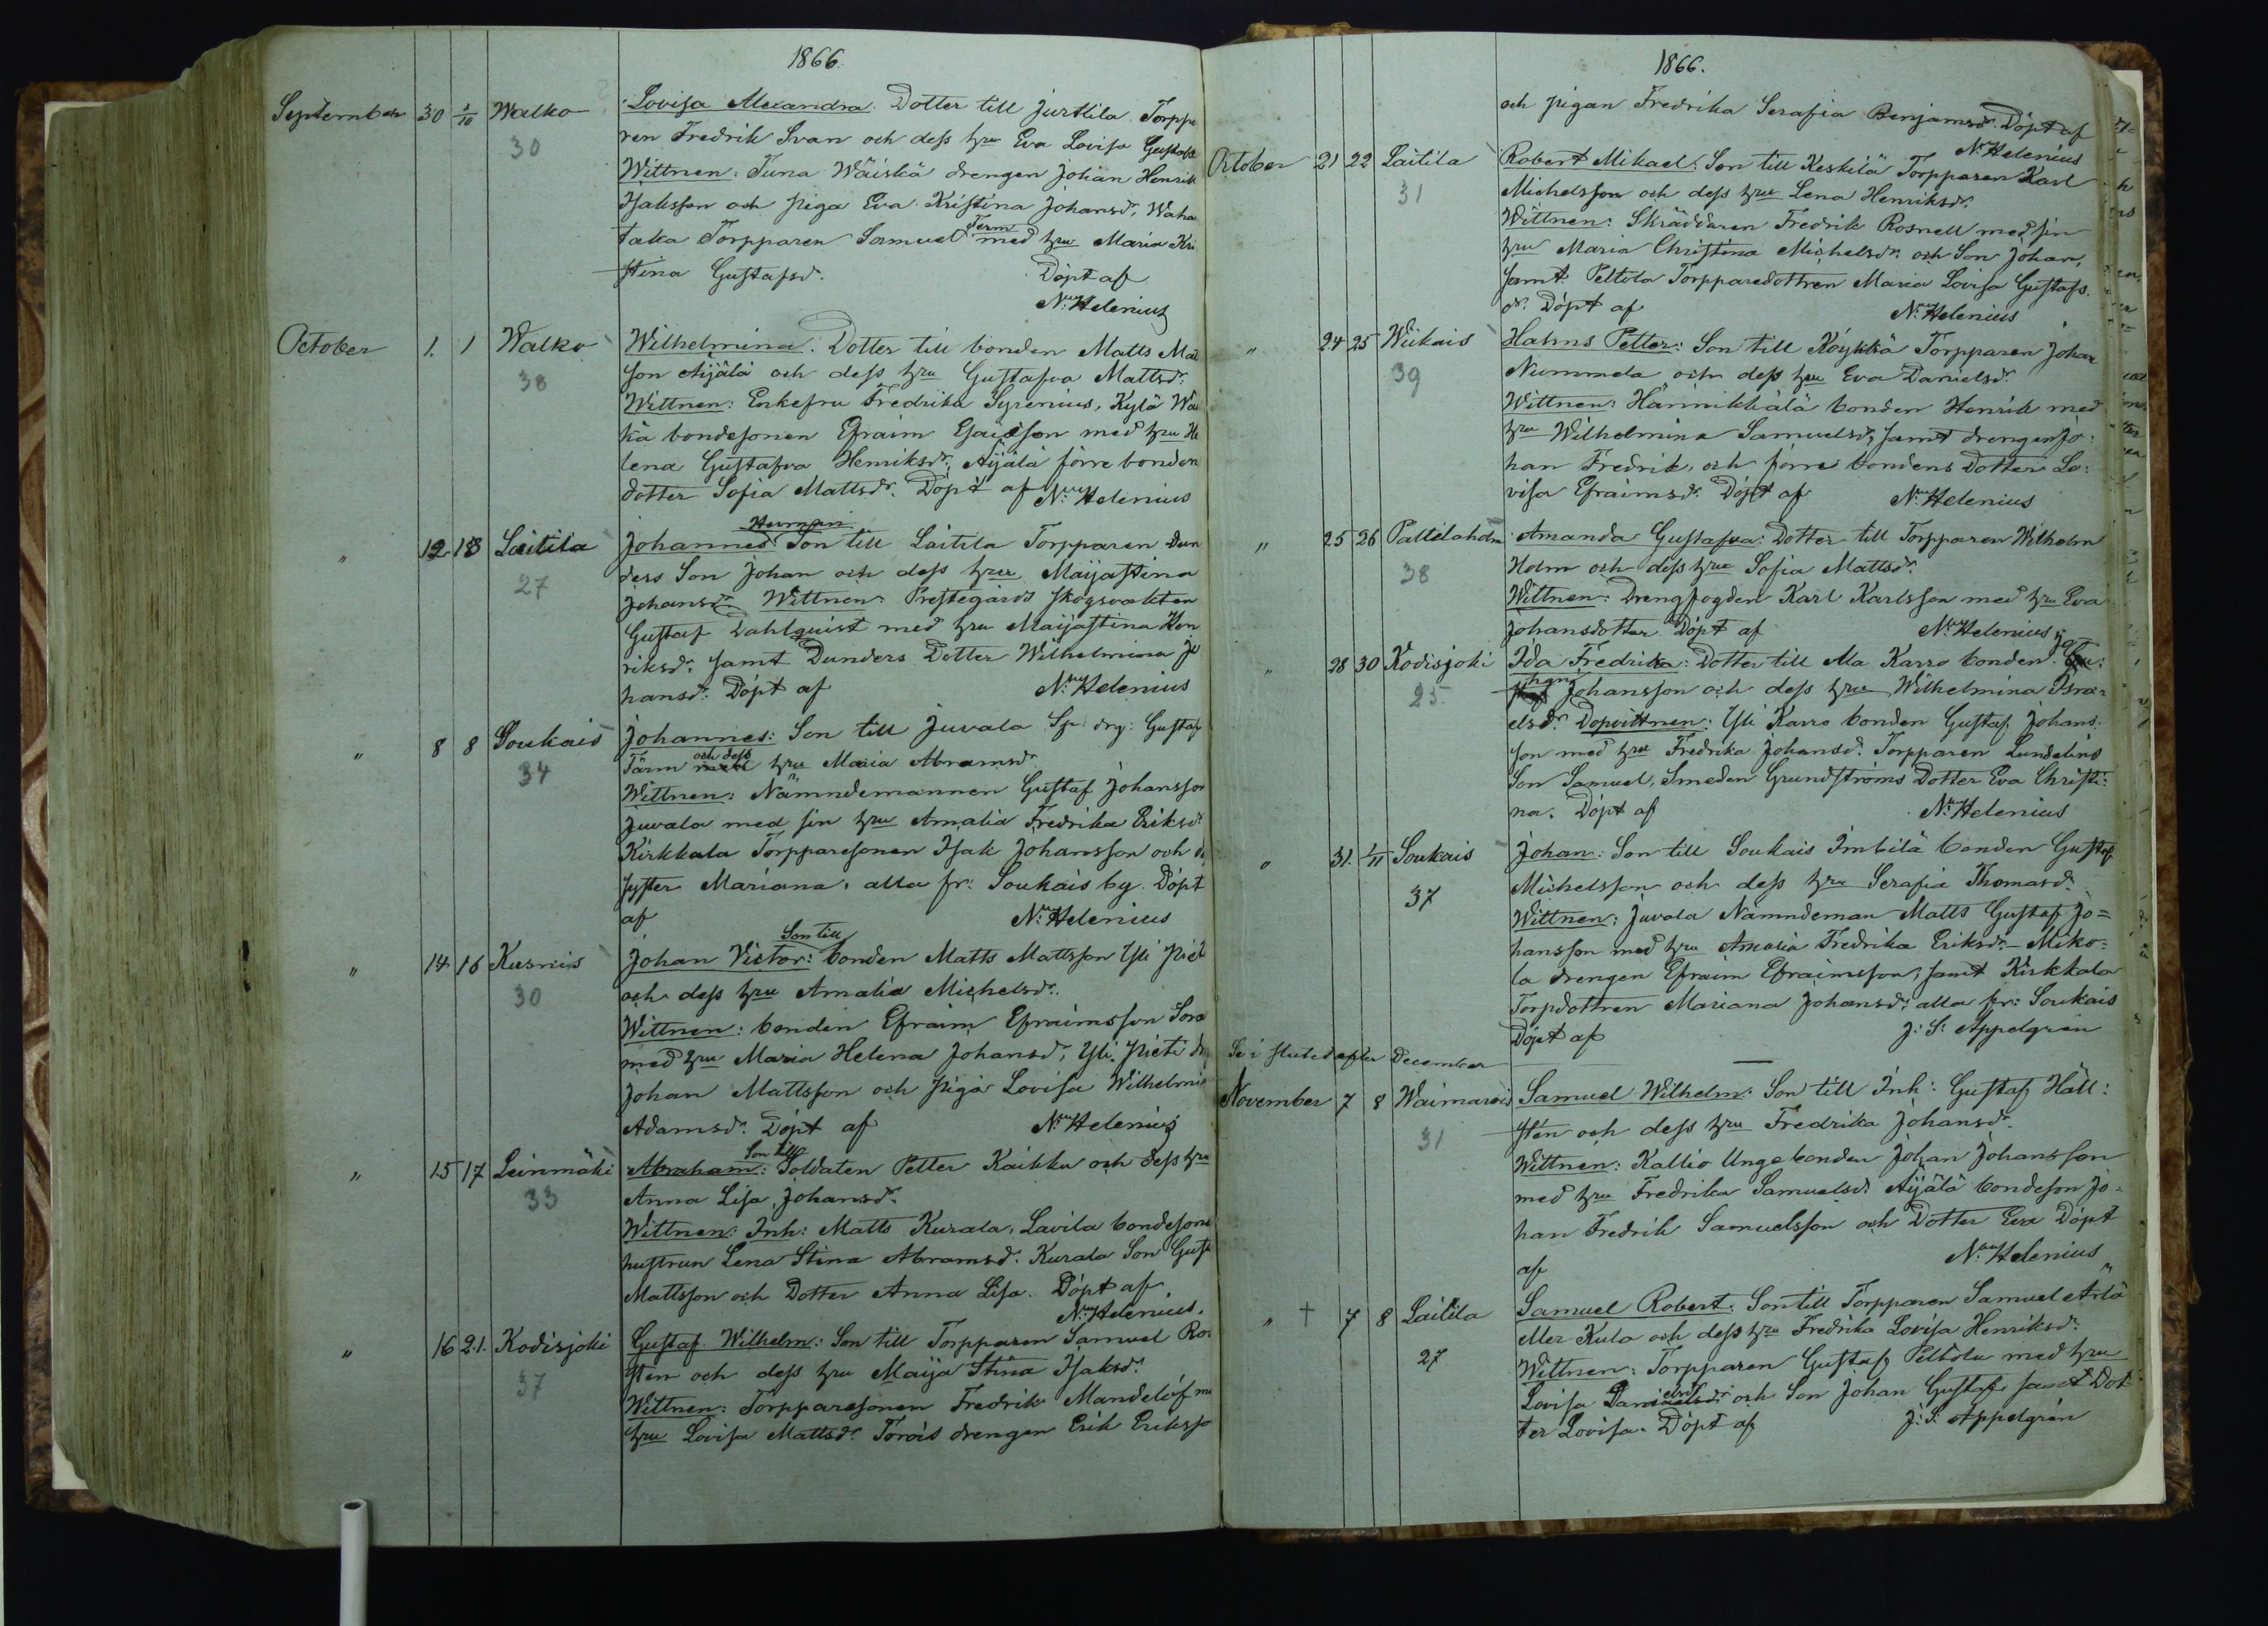 1866.
September 30 1/10 Walko Lovisa Alexandra. Dotter till Jurttila Torppa
30 ren Fredrik Svan och dess hru Eva Lovisa Gustafs
Wittnen: Tuna Wäiskä drengen Johan Henrik
Isaksson och piga Eva Kristina Johansdr, Waha
taka Torpparen Samuel Term med hru Maria Kri
stina Gustafsdr. Döpt af
N. Helenius
October 1. 1 Walko Wilhelmina. Dotter till bonden Matts Mat
38 son Äijälä och dess hru Gustafva Mattsdr.
Wittnen: Enkefru Fredrika Syrenius, Kylä Wäi
kä bondesonen Efraim Esaiasson med hru He
lena Gustafva Henriksdr, Äijälä förre bonden
dotter Sofia Mattsdr. Döpt af N. Helenius
Herman
" 12 13 Laitila Johannes Son till Laitila Torpparen Dun
27 ders Son Johan och dess hru Maijastina
Johansdr. Wittnen: Prestegårds skogsvakten
Gustaf Dahlquist med hru Maijastina Hen
riksdr. samt Dunders Dotter Wilhelmina Jo
hansdr. Döpt af N. Helenius
" 8 8 Soukais Johannes: Son till Juvala Sp: drg: Gustaf
34 Tärm och dess hru Maria Abramsdr.
Wittnen: Nämndemannen Gustaf Johansson
Juvala med sin hru Amalia Fredrika Eriksdr
Kirkkala Torpparesonen Isak Johansson och d
syster Mariana, alla fr: Soukais by. Döpt
af N. Helenius
Son till
" 14 16 Kusnis Johan Victor: bonden Matts Mattsson Yli Piet
30 och dess hru Amalia Michelsdr.
Wittnen: bonden Efraim Efraimsson Sora
med hru Maria Helena Johansdr, Yli Pieti dr
Johan Mattsson och piga Lovisa Wilhelmi
Adamsdr. Döpt af N. Helenius
Son till
" 15 17 Leinmäki Abraham: Soldaten Petter Kaikku och dess hru
33 Anna Lisa Johansdr.
Wittnen: Inh: Matts Kurala, Lavila bondesons
hustrun Lena Stina Abramsdr. Kurala Son Gust
Mattsson och Dotter Anna Lisa. Döpt af
N. Helenius.
" 16 21. Kodisjoki Gustaf Wilhelm: Son till Torpparen Samuel Ro
37 sten och dess hru Maija Stina Isaksdr.
Wittnen: Torpparesonen Fredrik Mandelöf m
hru Lovisa Mattsdr. Torois drengen Erik Eriksso
1866.
och pigan Fredrika Serafia Benjamsdr. Döpt af
N. Helenius
October 21 22 Laitila Robert Mikael: Son till Keskilä Torpparen Karl
31 Michelsson och dess hru Lena Henriksdr.
Wittnen: Skräddaren Fredrik Rosnell med sin
hru Maria Christina Michelsdr. och Son Johan,
samt Peltola Torpparedottren Maria Lovisa Gustafs
dr. Döpt af N. Helenius
" 24 25 Wiikais Halms Petter: Son till Köykkä Torpparen Johan
39 Nummela och dess hru Eva Danielsdr.
Wittnen: Hännikkälä bonden Henrik med
hru Wilhelmina Samuelsdr, samt drengen Jo:
han Fredrik, och förre bondens Dotter Lo:
visa Efraimsdr. Döpt af N. Helenius
" 25 26 Pattilaholm Amanda Gustafva: Dotter till Torpparen Wilhelm
38 Holm och dess hru Sofia Mattsdr.
Wittnen: Drengfogden Karl Karlsson med hru Eva
Johansdotter Döpt af N. Helenius
" 28 30 Kodisjoki Ida Fredrika: Dotter till Ala Karro bonden Jo
25 hans Johansson och dess hru Wilhelmina Isra-
elsdr. Dopvittnen: Yli Karro bonden Gustaf Johans
son med hru Fredrika Johansdr. Torpparen Lundelins
Son Samuel, Smeden Grundströms Dotter Eva Christi:
na. Döpt af N. Helenius
" 31. 1/11 Soukais Johan: Son till Soukais Imbilä bonden Gustaf
37 Michelsson och dess hru Serafia Thomasdr.
Wittnen: Juvala Nämndeman Matts Gustaf Jo=
hansson med hru Amalia Fredrika Eriksdr - Miko-
la drengen Efraim Efraimsson, samt Kirkkala
Torpdottren Mariana Johansdr, alla fr: Soukais
Döpt af J: S: Appelgrén
Se i slutet efter December
November 7 8 Waimarois Samuel Wilhelm: Son till Inh: Gustaf Häll:
31 stén och dess hru Fredrika Johansdr.
Wittnen: Kallio Unga bonden Johan Johansson
med hru Fredrika Samuelsdr. Äijälä bondeson Jo-
han Fredrik Samuelsson och Dotter Eva Döpt
af N. Helenius
" † 7 8 Laitila Samuel Robert. Son till Torpparen Samuel Arlä
27 eller Kula och dess hru Fredrika Lovisa Henriksdr.
Wittnen: Torpparen Gustaf Peltola med hru
Lovisa Danielsdr och Son Johan Gustaf samt Dot
ter Lovisa. Döpt af J: S: Appelgrén